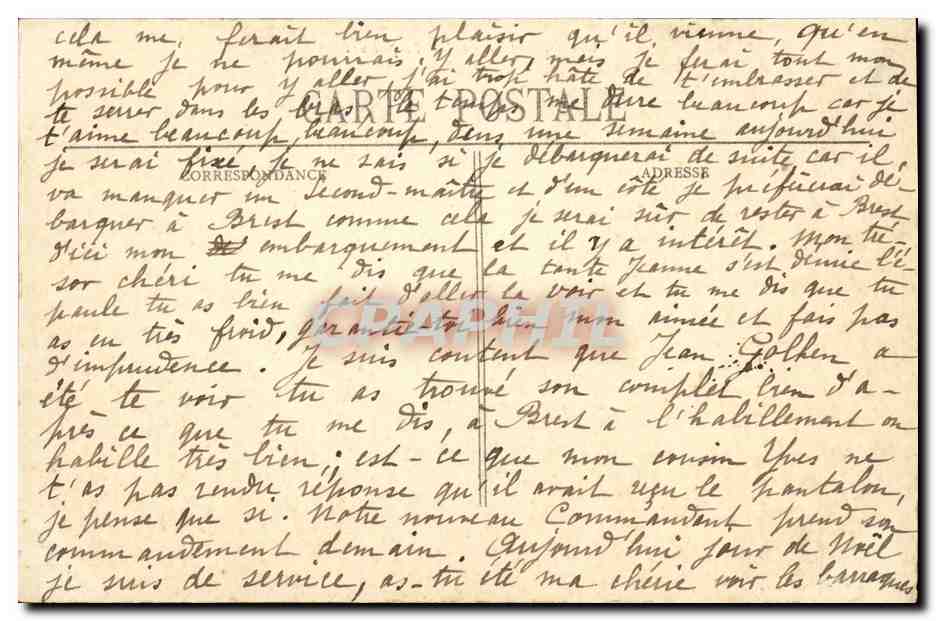 cela me, ferait bien plaisir qu'il vienne, qu'en
même je ne pourrais y aller, mais je ferai tout mon
possible pour y aller, j'ai trop hâte de t'embrasser et de
te serrer dans les bras. le temps me dure beaucoup car je
CARTE POSTALE
t'aime beaucoup, beaucoup, dans une semaine aujourd'hui
je serai fixé, je ne sais si je débarquerai de suite car il
CORRESPONDANCE
ADRESSE
va manquer un Second-maître et d'un côté je préfèrerai dé-
barquer à Brest comme cela je serai sûr de rester à Brest
d'ici mon embarquement et il y a intérêt. Mon tré-
sor chéri tu me dis que la tante Jeanne s'est démie l'é-
paule tu as bien fait d'aller la voir et tu me dis que tu
CPAPHIL
as eu très froid, garantie-toi bien mon aimée et fais pas
d'imprudence. Je suis content que Jean a
été te voir tu as trouvé son complet bien d'a-
près ce que tu me dis, à Brest à l'habillement on
habille très bien, ; est-ce que mon cousin Yves ne
t'as pas rendu réponse qu'il avait reçu le pantalon,
je pense que si. Notre nouveau Commandant prend son
commandement demain. Aujourd'hui jour de Noël
je suis de service, as-tu été ma chérie voir les barraques